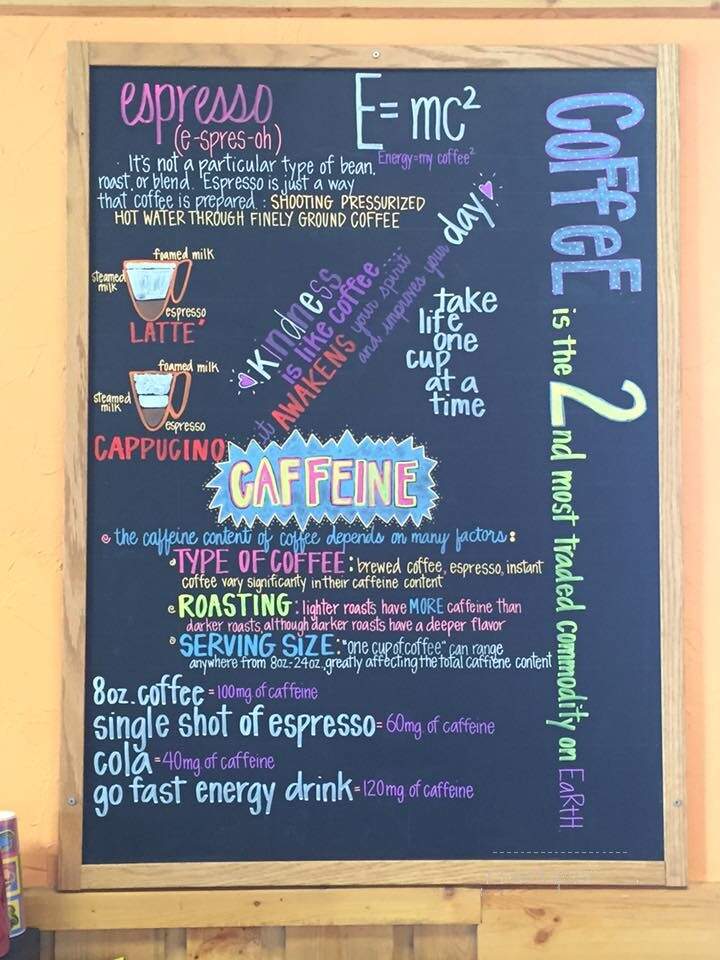 espresso
(e-spres-oh)
· It's not a particular type of bean,
roast, or blend. Espresso is just a way
that coffee is prepared. : SHOOTING PRESSURIZED
HOT WATER THROUGH FINELY GROUND COFFEE
E=mc²
Energy=my coffee²
foamed milk
steamed
milk
espresso
LATTE'
foamed milk
steamed
milk
espresso
CAPPUCINO
kindness
is like coffee....
it AWAKENS your spirit
and improves your day
take
life
one
cup
at a
time
COFFEE is the 2nd most traded commodity on EaRtH
CAFFEINE
the caffeine content of coffee depends on many factors:
TYPE OF COFFEE: brewed coffee, espresso, instant
coffee vary significantly in their caffeine content
ROASTING: lighter roasts have MORE caffeine than
darker roasts, although darker roasts have a deeper flavor
SERVING SIZE: "one cup of coffee" can range
anywhere from 8oz-24oz, greatly affecting the total caffiene content
8oz. coffee = 100mg. of caffeine
single shot of espresso = 60mg. of caffeine
cola = 40mg. of caffeine
go fast energy drink = 120mg of caffeine